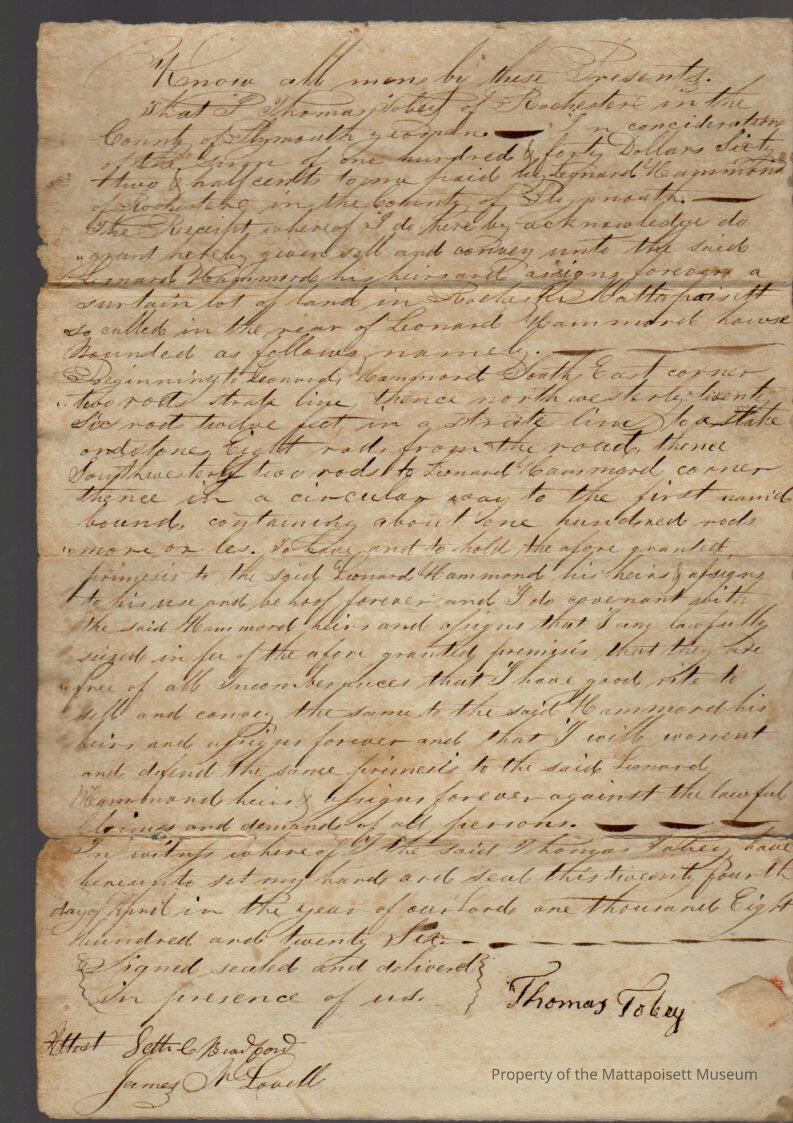 Know all men by these Presents.
That I Thomas Tobey of Rochester in the
County of Plymouth yeoman. In concideration
of the Sum of one hundred & forty Dollars Sixty
two & half cents to me paid by Leonard Hammond
of Rochester in the County of Plymouth.
The Receipt whereof I do here by acknowledge do
grant hereby given sell and convey unto the said
Leonard Hammond his heirs and asigns forever a
surtain lot of land in Rochester Mattapoisett
so called in the rear of Leonard Hammond howse
Bounded as follows namely.
Beginning to Leonard Hammond South East corner
two rods strate line, thence northwesterly twenty
Six rod twelve feet in a strate line to a stake
and stones Eight rods from the road, thence
Southwesterly two rods to Leonard Hammond corner
thence in a circular way to the first named
bound, containing about one hundred rods
more or les. To have and to hold the afore granted
primesis to the said Leonard Hammond his heirs & assigns
to his use and behoof forever and I do covenant with
the said Hammond heirs and assigns that I am lawfully
seized in fee of the afore granted premisis that they are
free of all Incomberances that I have good rite to
sell and convey the same to the said Hammond his
heirs and assigns forever and that I will worrent
and defend the same primesis to the said Leonard
Hammond heirs & assigns forever against the lawful
Claimes and demands of all persons.
In witness whereof I the said Thomas Tobey have
hereunto set my hand and seal this twenty fourth
day of April in the year of our Lord one thousand Eight
hundred and twenty Six.
Signed sealed and delivered
in presence of us.
Thomas Tobey
Attest Seth C Bradford
James N Lovell
Property of the Mattapoisett Museum